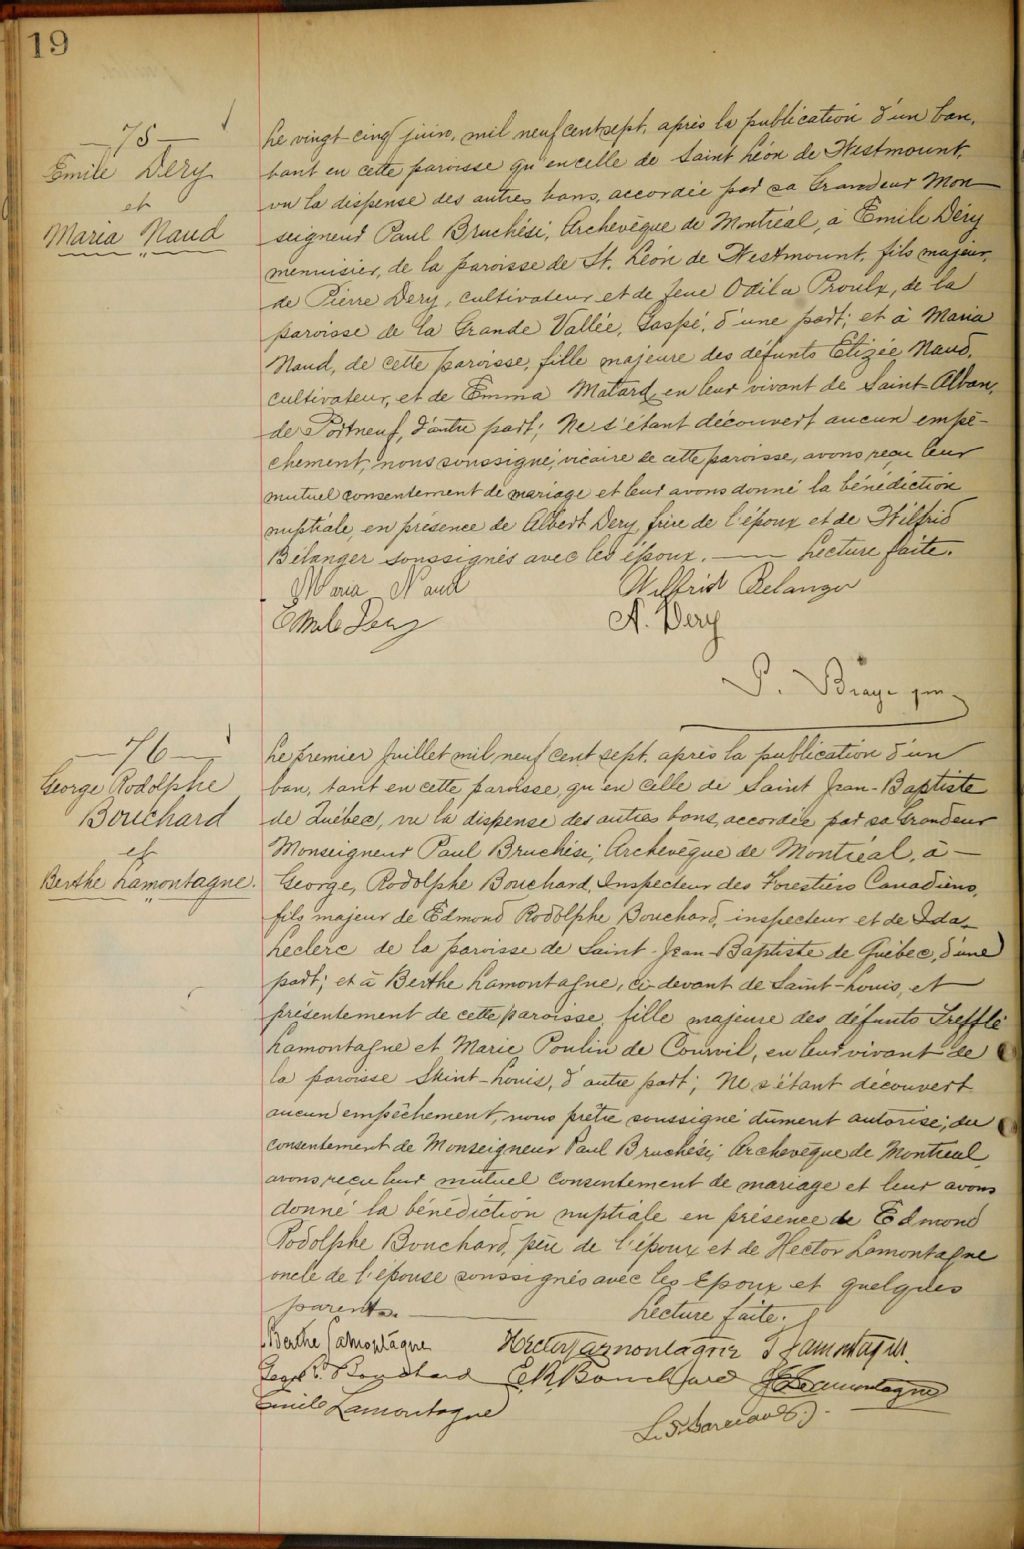 19
75
Emile Dery
et
Maria Naud
Le vingt-cinq juin, mil neuf cent sept, après la publication d'un ban,
tant en cette paroisse qu'en celle de Saint Léon de Westmount,
vu la dispense des autres bans, accordée par sa Grandeur Mon-
seigneur Paul Bruchési, Archevêque de Montréal, à Emile Déry
menuisier, de la paroisse de St. Léon de Westmount, fils majeur,
de Pierre Dery, cultivateur et de feue Odila Proulx, de la
paroisse de la Grande Vallée, Gaspé, d'une part; et à Maria
Naud, de cette paroisse, fille majeure des défunts Elizée Naud,
cultivateur, et de Emma Matard, en leur vivant de Saint-Alban,
de Portneuf, d'autre part; Ne s'étant découvert aucun empê-
chement, nous soussigné, vicaire de cette paroisse, avons reçu leur
mutuel consentement de mariage et leur avons donné la bénédiction
nuptiale, en présence de Albert Dery, frère de l'époux et de Wilfrid
Bélanger soussignés avec les époux. — Lecture faite.
Maria Naud Wilfrid Belanger
Emile Dery A. Dery
P. Braye
76
George Rodolphe
Bouchard
et
Berthe Lamontagne.
Le premier Juillet mil neuf cent sept, après la publication d'un
ban, tant en cette paroisse, qu'en celle de Saint Jean-Baptiste
de Québec, vu la dispense des autres bans, accordée par sa Grandeur
Monseigneur Paul Bruchési, Archevêque de Montréal, à —
George, Rodolphe Bouchard, Inspecteur des Forestiers Canadiens,
fils majeur de Edmond Rodolphe Bouchard, inspecteur et de Ida
Leclerc de la paroisse de Saint-Jean-Baptiste de Québec, d'une
part; et à Berthe Lamontagne, ci-devant de Saint-Louis, et
présentement de cette paroisse, fille majeure des défunts Trefflé
Lamontagne et Marie Poulin de Courvil, en leur vivant de
la paroisse Saint-Louis, d'autre part; Ne s'étant découvert
aucun empêchement, nous prêtre soussigné dûment autorisé, du
consentement de Monseigneur Paul Bruchési, Archevêque de Montreal,
avons reçu leur mutuel consentement de mariage et leur avons
donné la bénédiction nuptiale en présence de Edmond
Rodolphe Bouchard, père de l'époux et de Hector Lamontagne
oncle de l'épouse soussignés avec les Epoux et quelques
parents. — Lecture faite.
Berthe Lamontagne Hector Lamontagne Lamontagne
Bouchard E.R. Bouchard Lamontagne
Emile Lamontagne